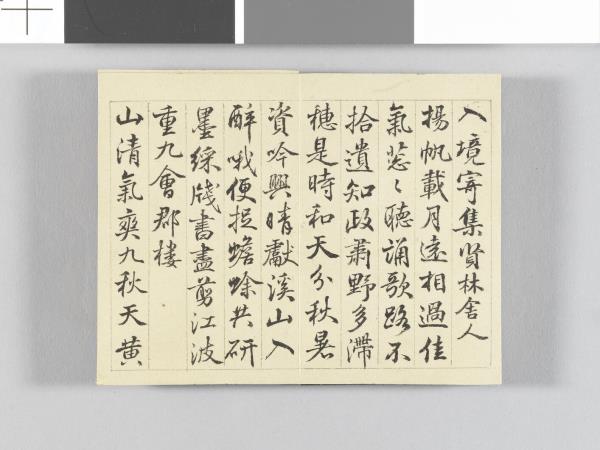 入境寄集賢林舍人
揚帆載月遠相過佳
氣葱〻聽誦歌路不
拾遺知政肅野多滯
穗是時和天分秋暑
資吟興晴獻溪山入
醉哦便捉蟾蜍共研
墨綵牋書盡剪江波
重九會郡樓
山清氣爽九秋天黄